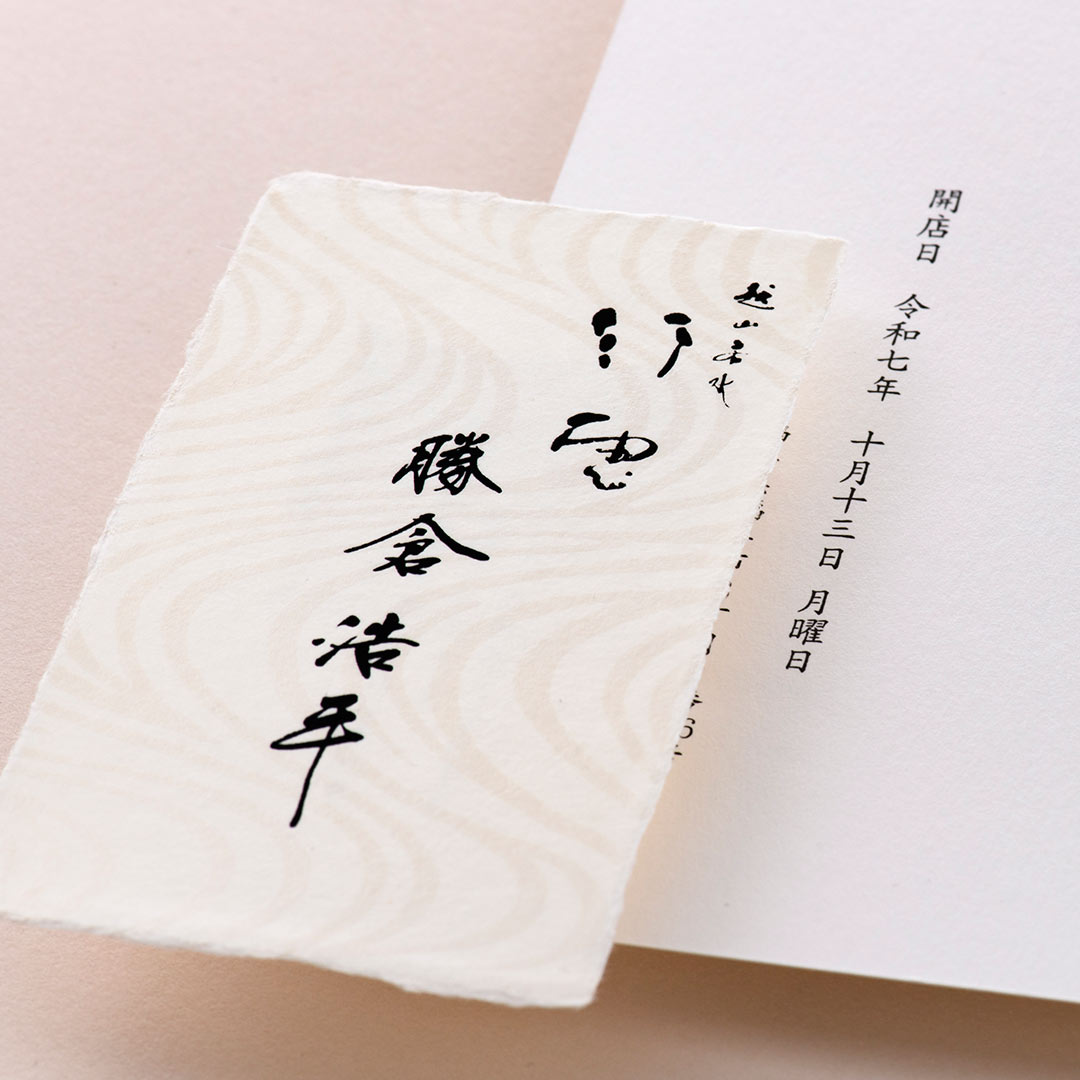 開店日 令和七年 十月十三日 月曜日
越山若水
行雲
勝倉浩平